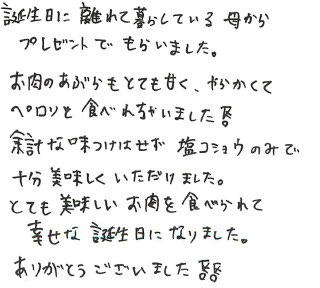 誕生日に 離れて暮らしている 母から
プレゼントで もらいました。
お肉のあぶらもとても甘く、やらかくて
ペロリと 食べれちゃいました
余計な味つけはせず 塩コショウのみで
十分 美味しく いただけました。
とても 美味しい お肉を 食べられて
幸せな 誕生日に なりました。
ありがとう ございました